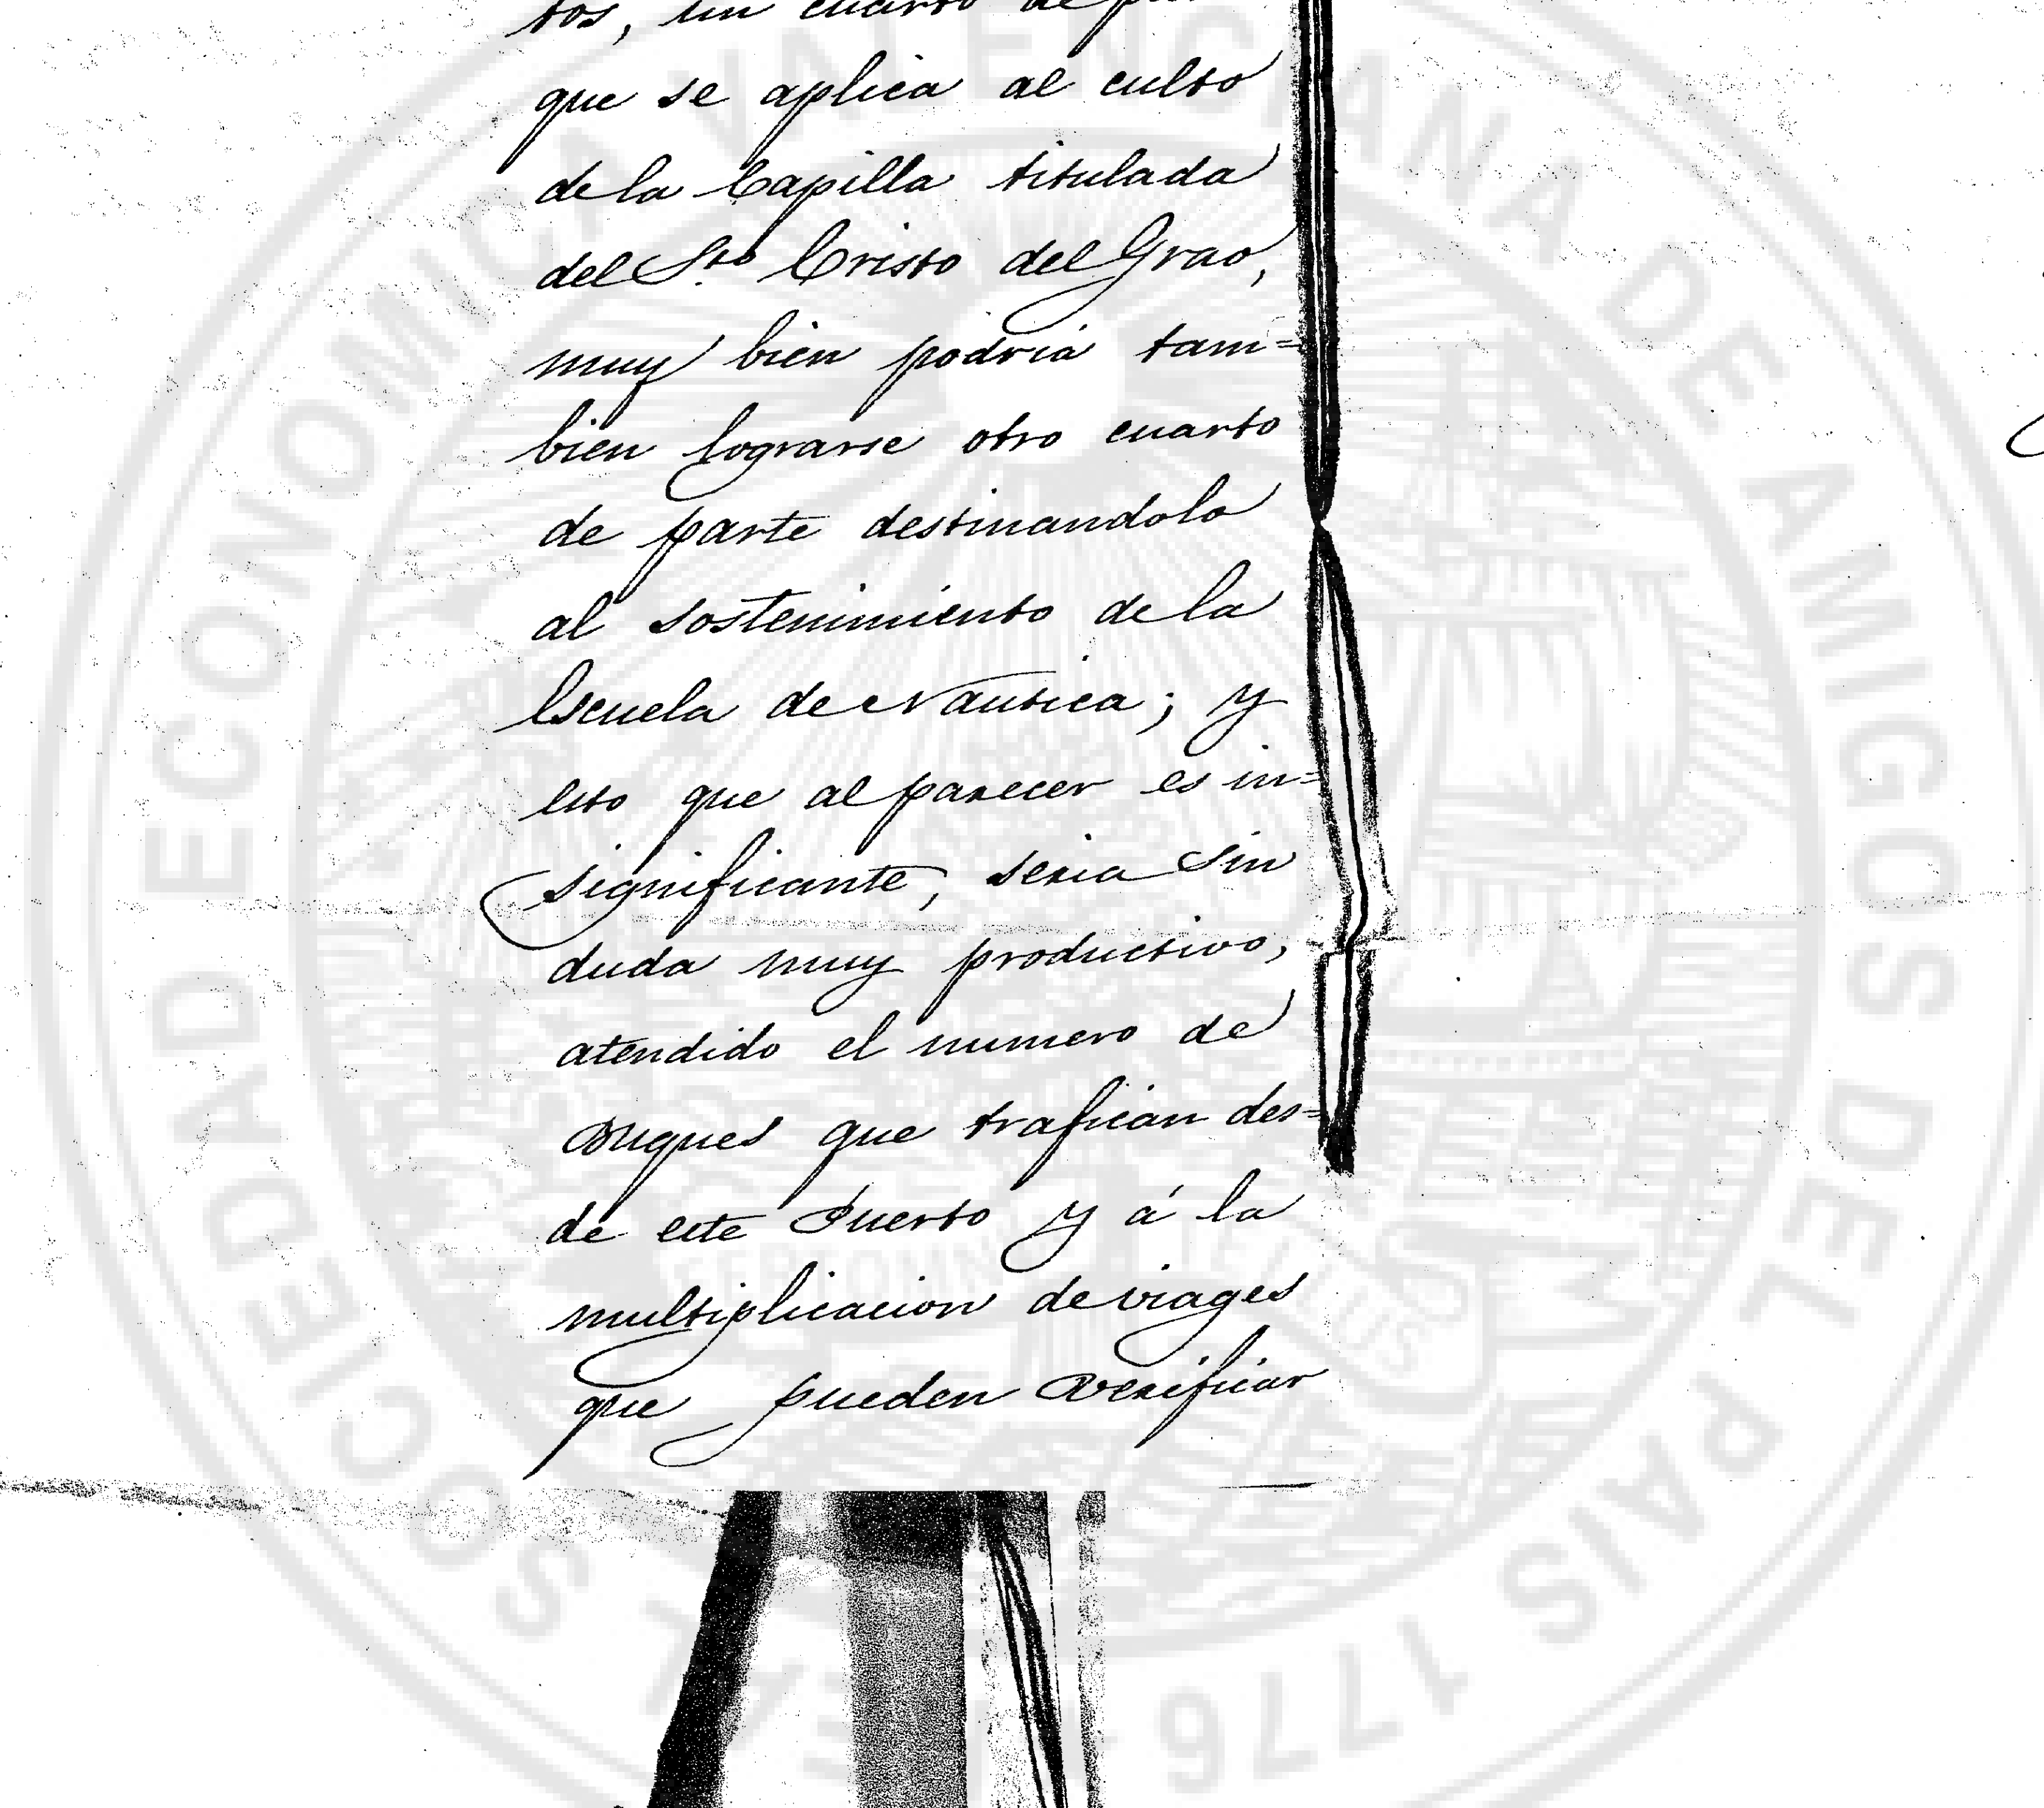 tos, un cuarto de
que se aplica al culto
de la Capilla titulada
del Sto. Cristo del Grao,
muy bien podria tam=
bien lograrse otro cuarto
de parte destinandolo
al sostenimiento de la
Escuela de Nautica; y
esto que al parecer es in=
significante, seria sin
duda muy productivo,
atendido el numero de
Buques que trafican des=
de este Puerto y á la
multiplicacion de viages
que pueden verificar
SOCIEDAD ECONOMICA VALENCIANA DE AMIGOS DEL PAIS 1776